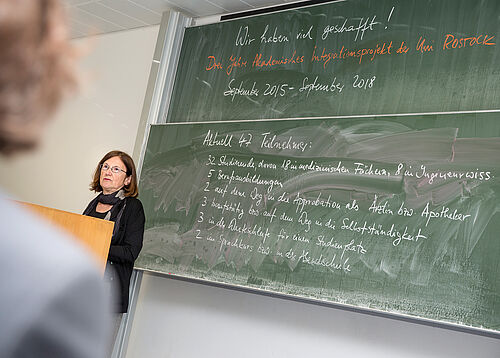 Wir haben viel geschafft!
Drei Jahre Akademisches Integrationsprojekt der Uni ROSTOCK
September 2015 - September 2018
Aktuell 47 Teilnehmer:
32 Studierende, davon 18 in medizinischen Fächern, 8 in Ingenieurwiss.
5 Berufsausbildungen
2 auf dem Weg in die Approbation als Ärztin bzw. Apotheker
3 berufstätig bzw. auf dem Weg in die Selbstständigkeit
3 in der Warteschleife für einen Studienplatz
2 im Sprachkurs bzw. in der Abendschule